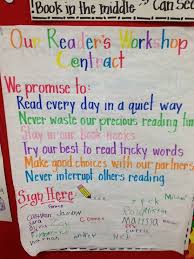 !Book in the middle
Can
Our Reader's Workshop
Contract
We promise to:
Read every day in a quiet way
Never waste our precious reading time
Stay in our Book Nooks
Try our best to read tricky words
Make good choices with our partners
Never interrupt others reading
Sign Here
Malissa
nick